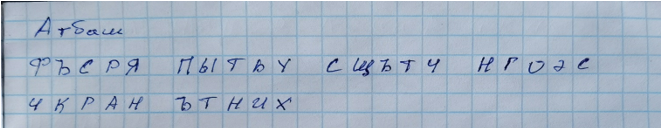 Атбаш
Ф Ъ С Р Я П Ы Т Ь У С Щ Ъ Т Ч Н Г О Э С
Ч К Р А Н Ъ Т Н И Х